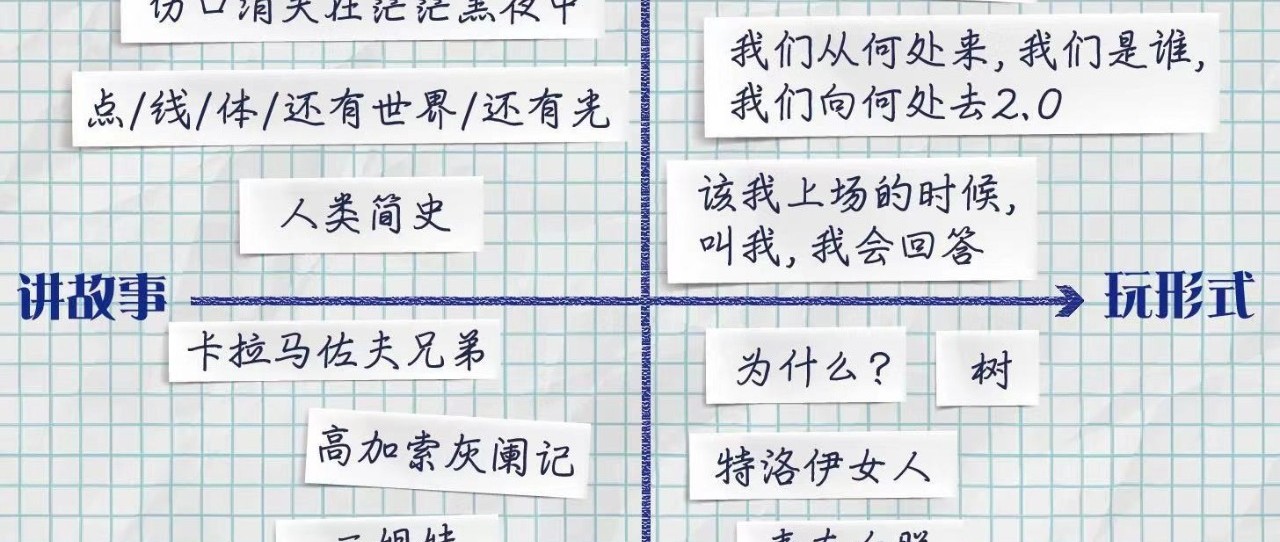 伤口消失在茫茫黑夜中
我们从何处来, 我们是谁,
我们向何处去2.0
点/线/体/还有世界/还有光
人类简史
该我上场的时候,
叫我, 我会回答
讲故事
玩形式
卡拉马佐夫兄弟
为什么?
树
高加索灰阑记
特洛伊女人